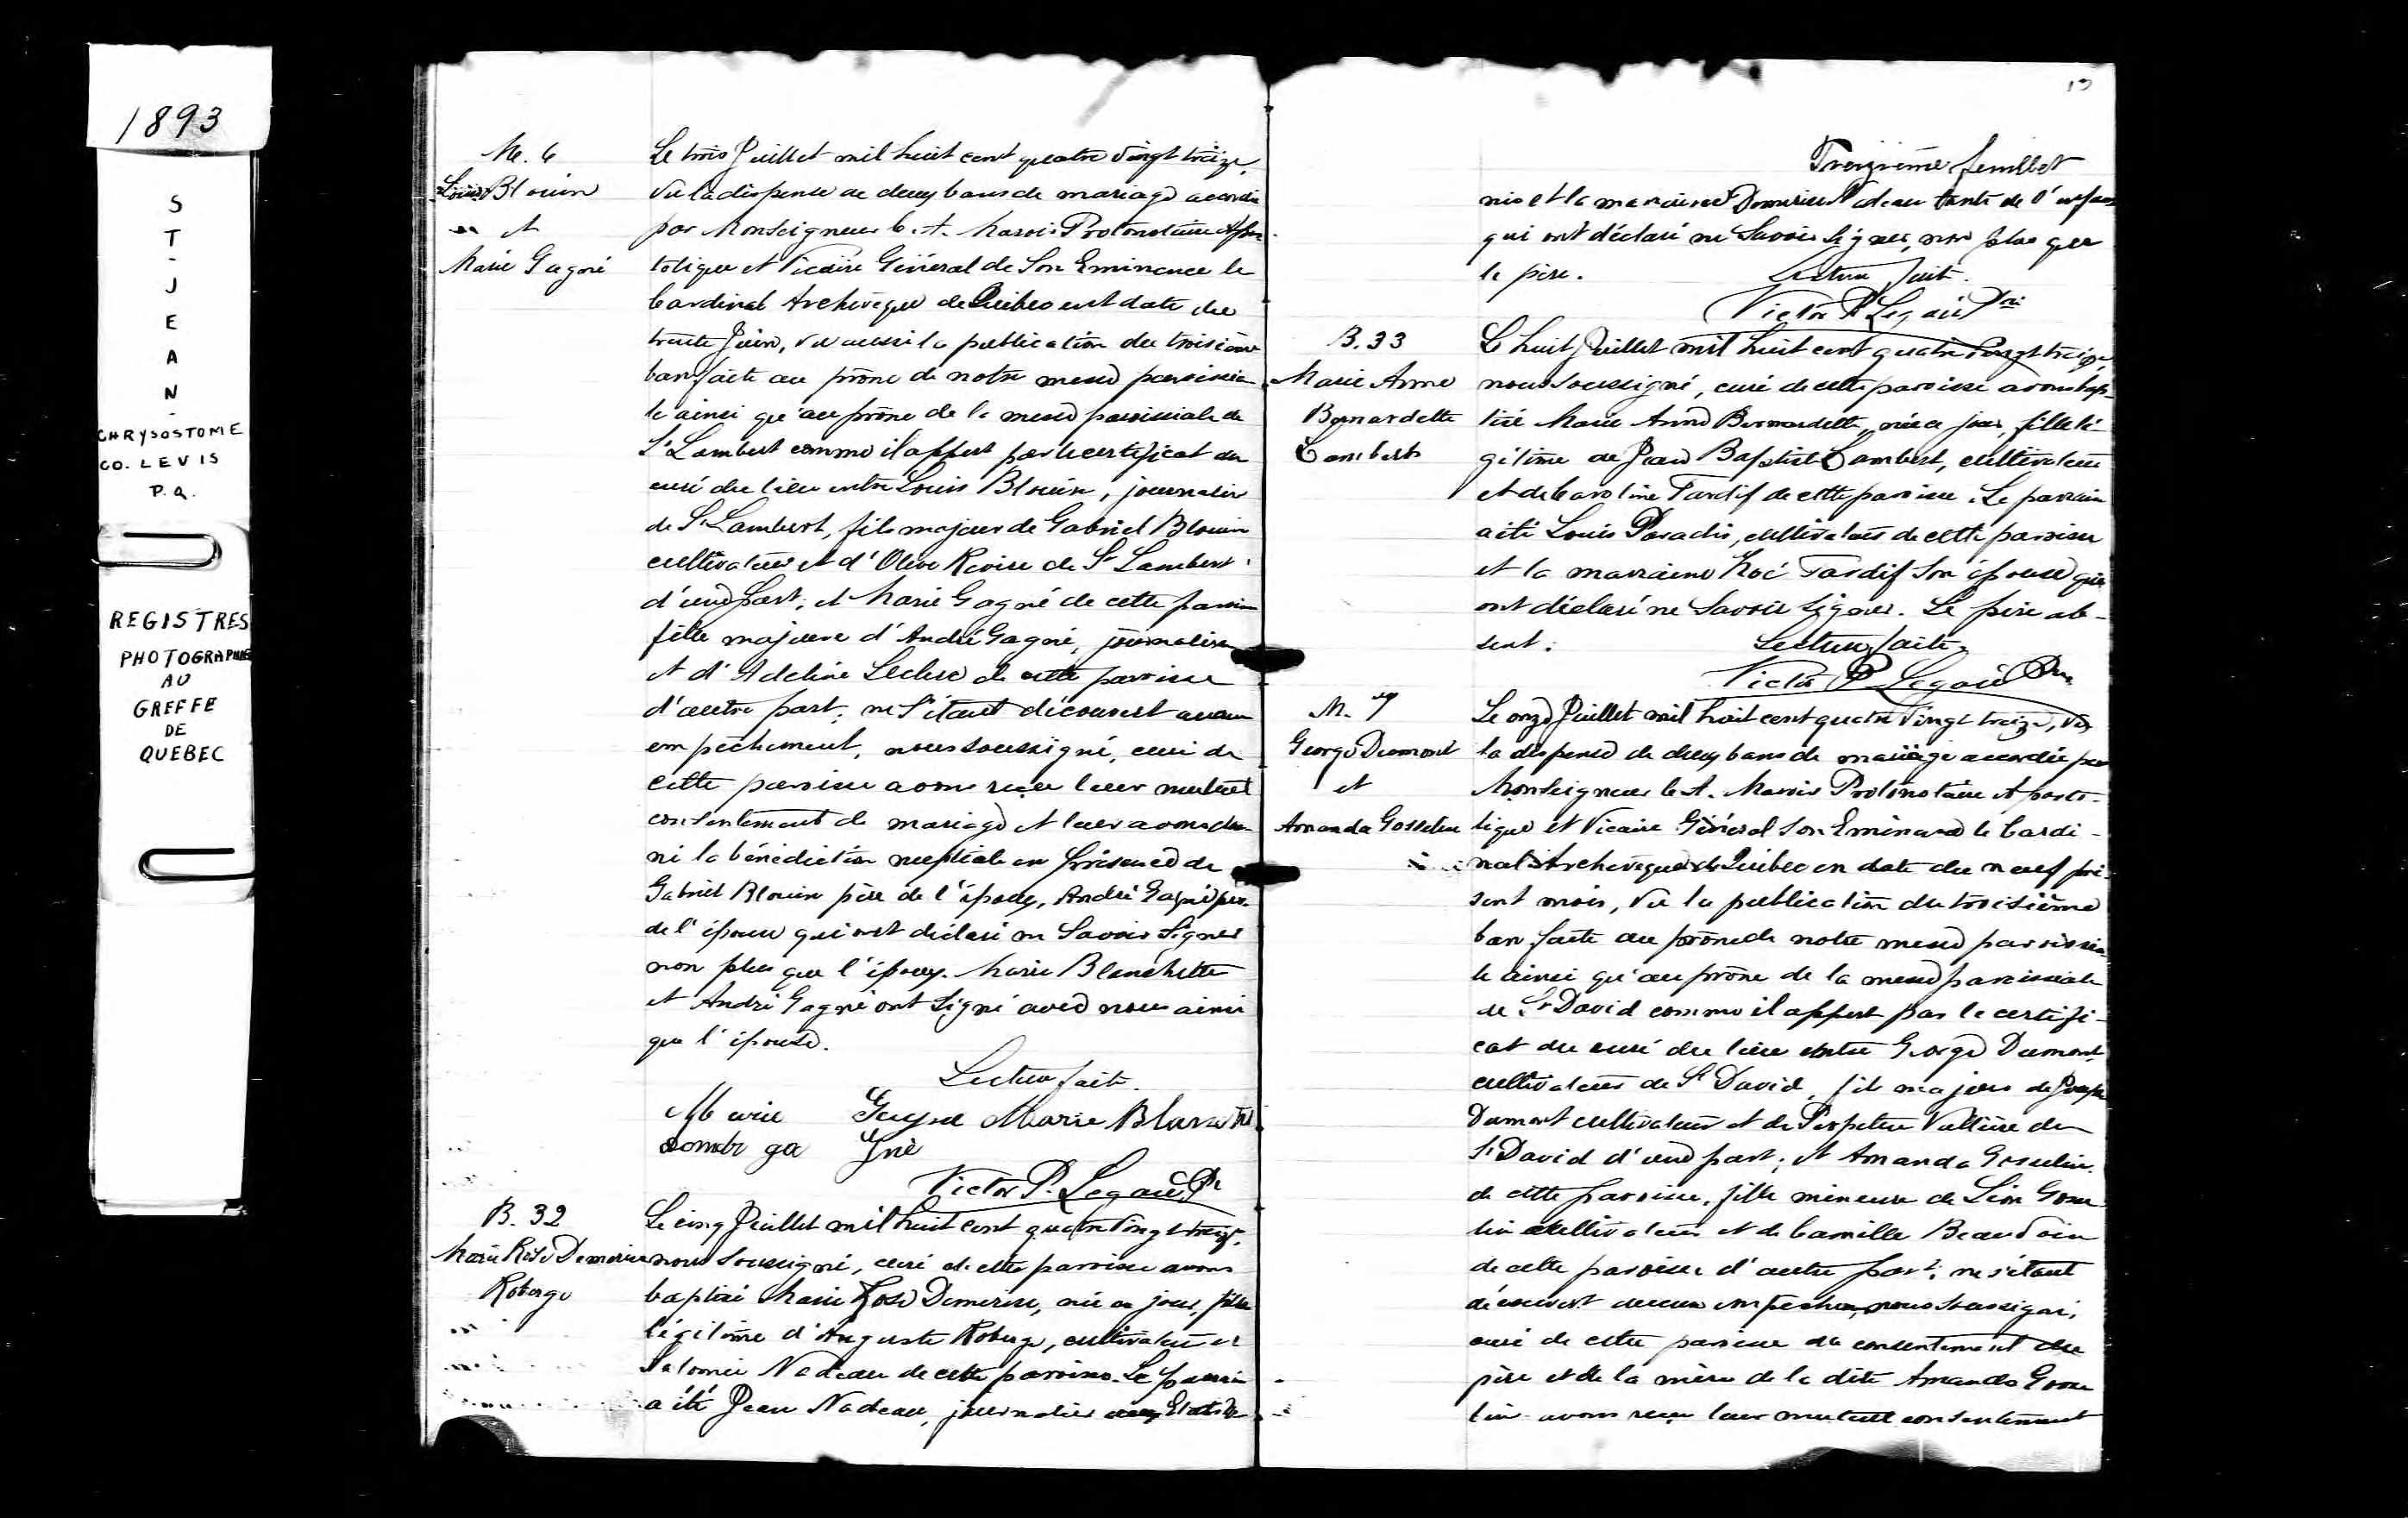 1893
ST-JEAN-
CHRYSOSTOME
CO. LEVIS
P.Q.
REGISTRES
PHOTOGRAPHIES
AU
GREFFE
DE
QUEBEC
M. 6
Louis Blouin
et
Marie Gagné
Le trois Juillet mil huit cent quatre vingt treize,
Vu la dispense de deux bans de mariage accordée
par Monseigneur C. A. Marois Protonotaire Apos
tolique et Vicaire Général de Son Eminence le
Cardinal Archevêque de Québec en date du
trente Juin, vu aussi la publication du troisième
ban faite au prône de notre messe paroissia
le ainsi qu'au prône de la messe paroissiale de
St Lambert comme il appert par le certificat du
curé du lieu entre Louis Blouin, journalier
de St Lambert, fils majeur de Gabriel Blouin
cultivateur et d'Olive de St Lambert
d'une part; et Marie Gagné de cette paroisse
fille majeure d'André Gagné, journalier
et d'Adeline Leclerc de cette paroisse
d'autre part; ne s'étant découvert aucun
empêchement, nous soussigné, curé de
cette paroisse avons reçu leur mutuel
consentement de mariage et leur avons don
né la bénédiction nuptiale en présence de
Gabriel Blouin père de l'époux, André Gagné père
de l'épouse qui ont déclaré ne savoir signer
non plus que l'époux. Marie Blanchette
et André Gagné ont signé avec nous ainsi
que l'épouse.
Lecture faite.
Marie Marie
ga gné
Victor P. Legaré Ptr
B. 32
Marie Rose Demerise
Roberge
Le cinq Juillet mil huit cent quatre vingt treize,
nous soussigné, curé de cette paroisse avons
baptisé Marie Rose Demerise, née ce jour, fille
légitime d'Auguste Roberge, cultivateur et
Salomée Nadeau de cette paroisse. Le parrain
a été Jean Nadeau, journalier aux Etats U
13
Treizième feuillet
nis et la marraine Demerise Nadeau tante de l'enfant
qui ont déclaré ne savoir signer, non plus que
le père. Lecture faite.
Victor P. Legaré Ptr
B. 33
Marie Anne
Bernardette
Lambert
Le huit Juillet mil huit cent quatre vingt treize,
nous soussigné, curé de cette paroisse avons bap-
tisé Marie Anne Bernardette, née ce jour, fille lé-
gitime de Jean Baptiste Lambert, cultivateur
et de Caroline Tardif de cette paroisse. Le parrain
a été Louis Paradis, cultivateur de cette paroisse
et la marraine Tardif son épouse qui
ont déclaré ne savoir signer. Le père ab-
sent. Lecture faite.
Victor P. Legaré Ptr
M. 7
George Dumont
et
Amanda Gosselin
Le onze Juillet mil huit cent quatre vingt treize, vu
la dispense de deux bans de mariage accordée par
Monseigneur C. A. Marois Protonotaire Aposto-
lique et Vicaire Général Son Eminence le Cardi-
nal Archevêque de Québec en date du neuf pré-
sent mois, Vu la publication du troisième
ban faite au prône de notre messe paroissia
le ainsi qu'au prône de la messe paroissiale
de St David comme il appert par le certifi-
cat du curé du lieu entre George Dumont
cultivateur de St David, fils majeur de Joseph
Dumont cultivateur et de Perpétue Vallière de
St David d'une part; et Amanda Gosselin
de cette paroisse, fille mineure de Léon Gosse
lin cultivateur et de Camille Beaudoin
de cette paroisse d'autre part; ne s'étant
découvert aucun nous soussigné,
curé de cette paroisse du consentement du
père et de la mère de la dite Amanda Gosse
lin avons reçu leur mutuel consentement